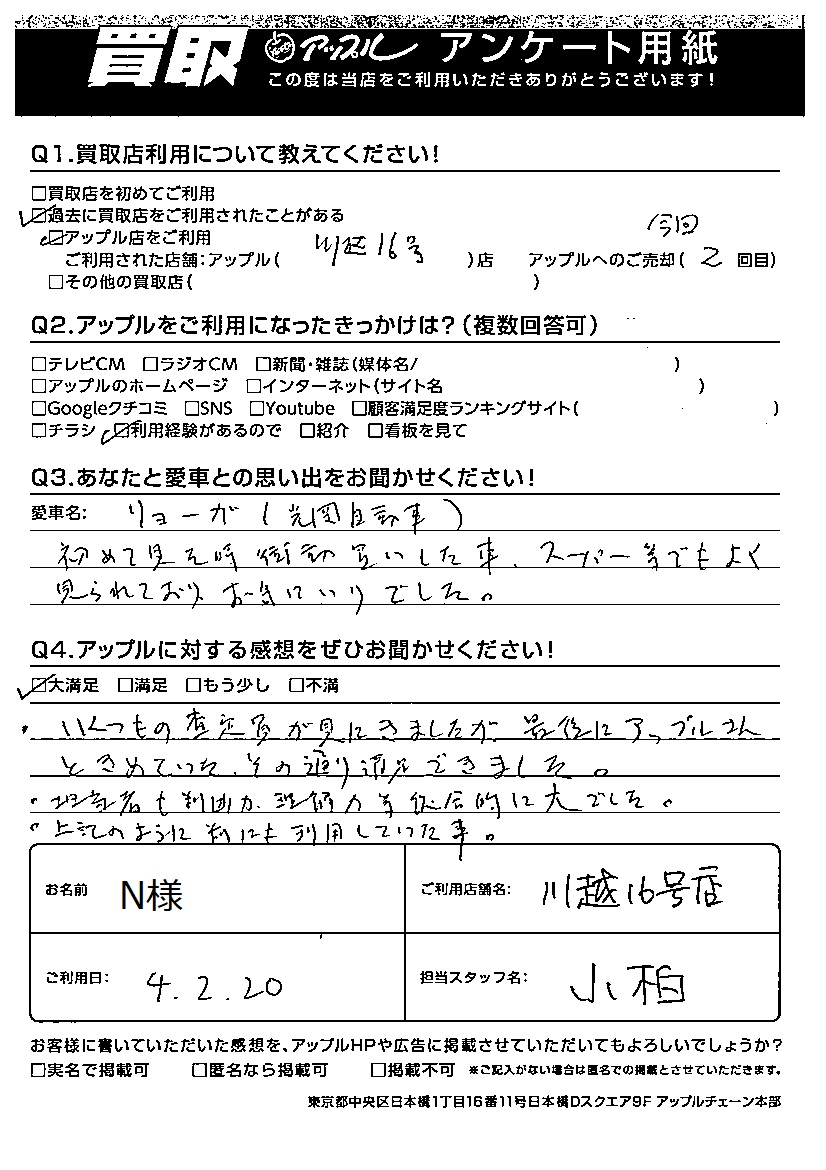 買取 アップル アンケート用紙
この度は当店をご利用いただきありがとうございます!
Q1.買取店利用について教えてください!
□買取店を初めてご利用
☑過去に買取店をご利用されたことがある
☑アップル店をご利用
今回
ご利用された店舗:アップル( 川越16号 )店 アップルへのご売却( 2 回目)
□その他の買取店( )
Q2.アップルをご利用になったきっかけは?(複数回答可)
□テレビCM □ラジオCM □新聞・雑誌(媒体名/ )
□アップルのホームページ □インターネット(サイト名 )
□Googleクチコミ □SNS □Youtube □顧客満足度ランキングサイト( )
□チラシ ☑利用経験があるので □紹介 □看板を見て
Q3.あなたと愛車との思い出をお聞かせください!
愛車名: リョーガ(光岡自動車)
初めて見た時衝動買いした車、スーパー等でもよく
見られており、お気にいりでした。
Q4.アップルに対する感想をぜひお聞かせください!
☑大満足 □満足 □もう少し □不満
・いくつもの査定員が見にきましたが最後にアップルさん
ときめていた、その通り満足できました。
・担当者も判断力、理解力等 的に大でした。
・上記のように 前にも利用していた事。
お名前 N様
ご利用店舗名: 川越16号店
ご利用日: 4.2.20
担当スタッフ名: 小柏
お客様に書いていただいた感想を、アップルHPや広告に掲載させていただいてもよろしいでしょうか?
□実名で掲載可 □匿名なら掲載可 □掲載不可 ※ご記入がない場合は匿名での掲載とさせていただきます。
東京都中央区日本橋1丁目16番11号日本橋Dスクエア9F アップルチェーン本部